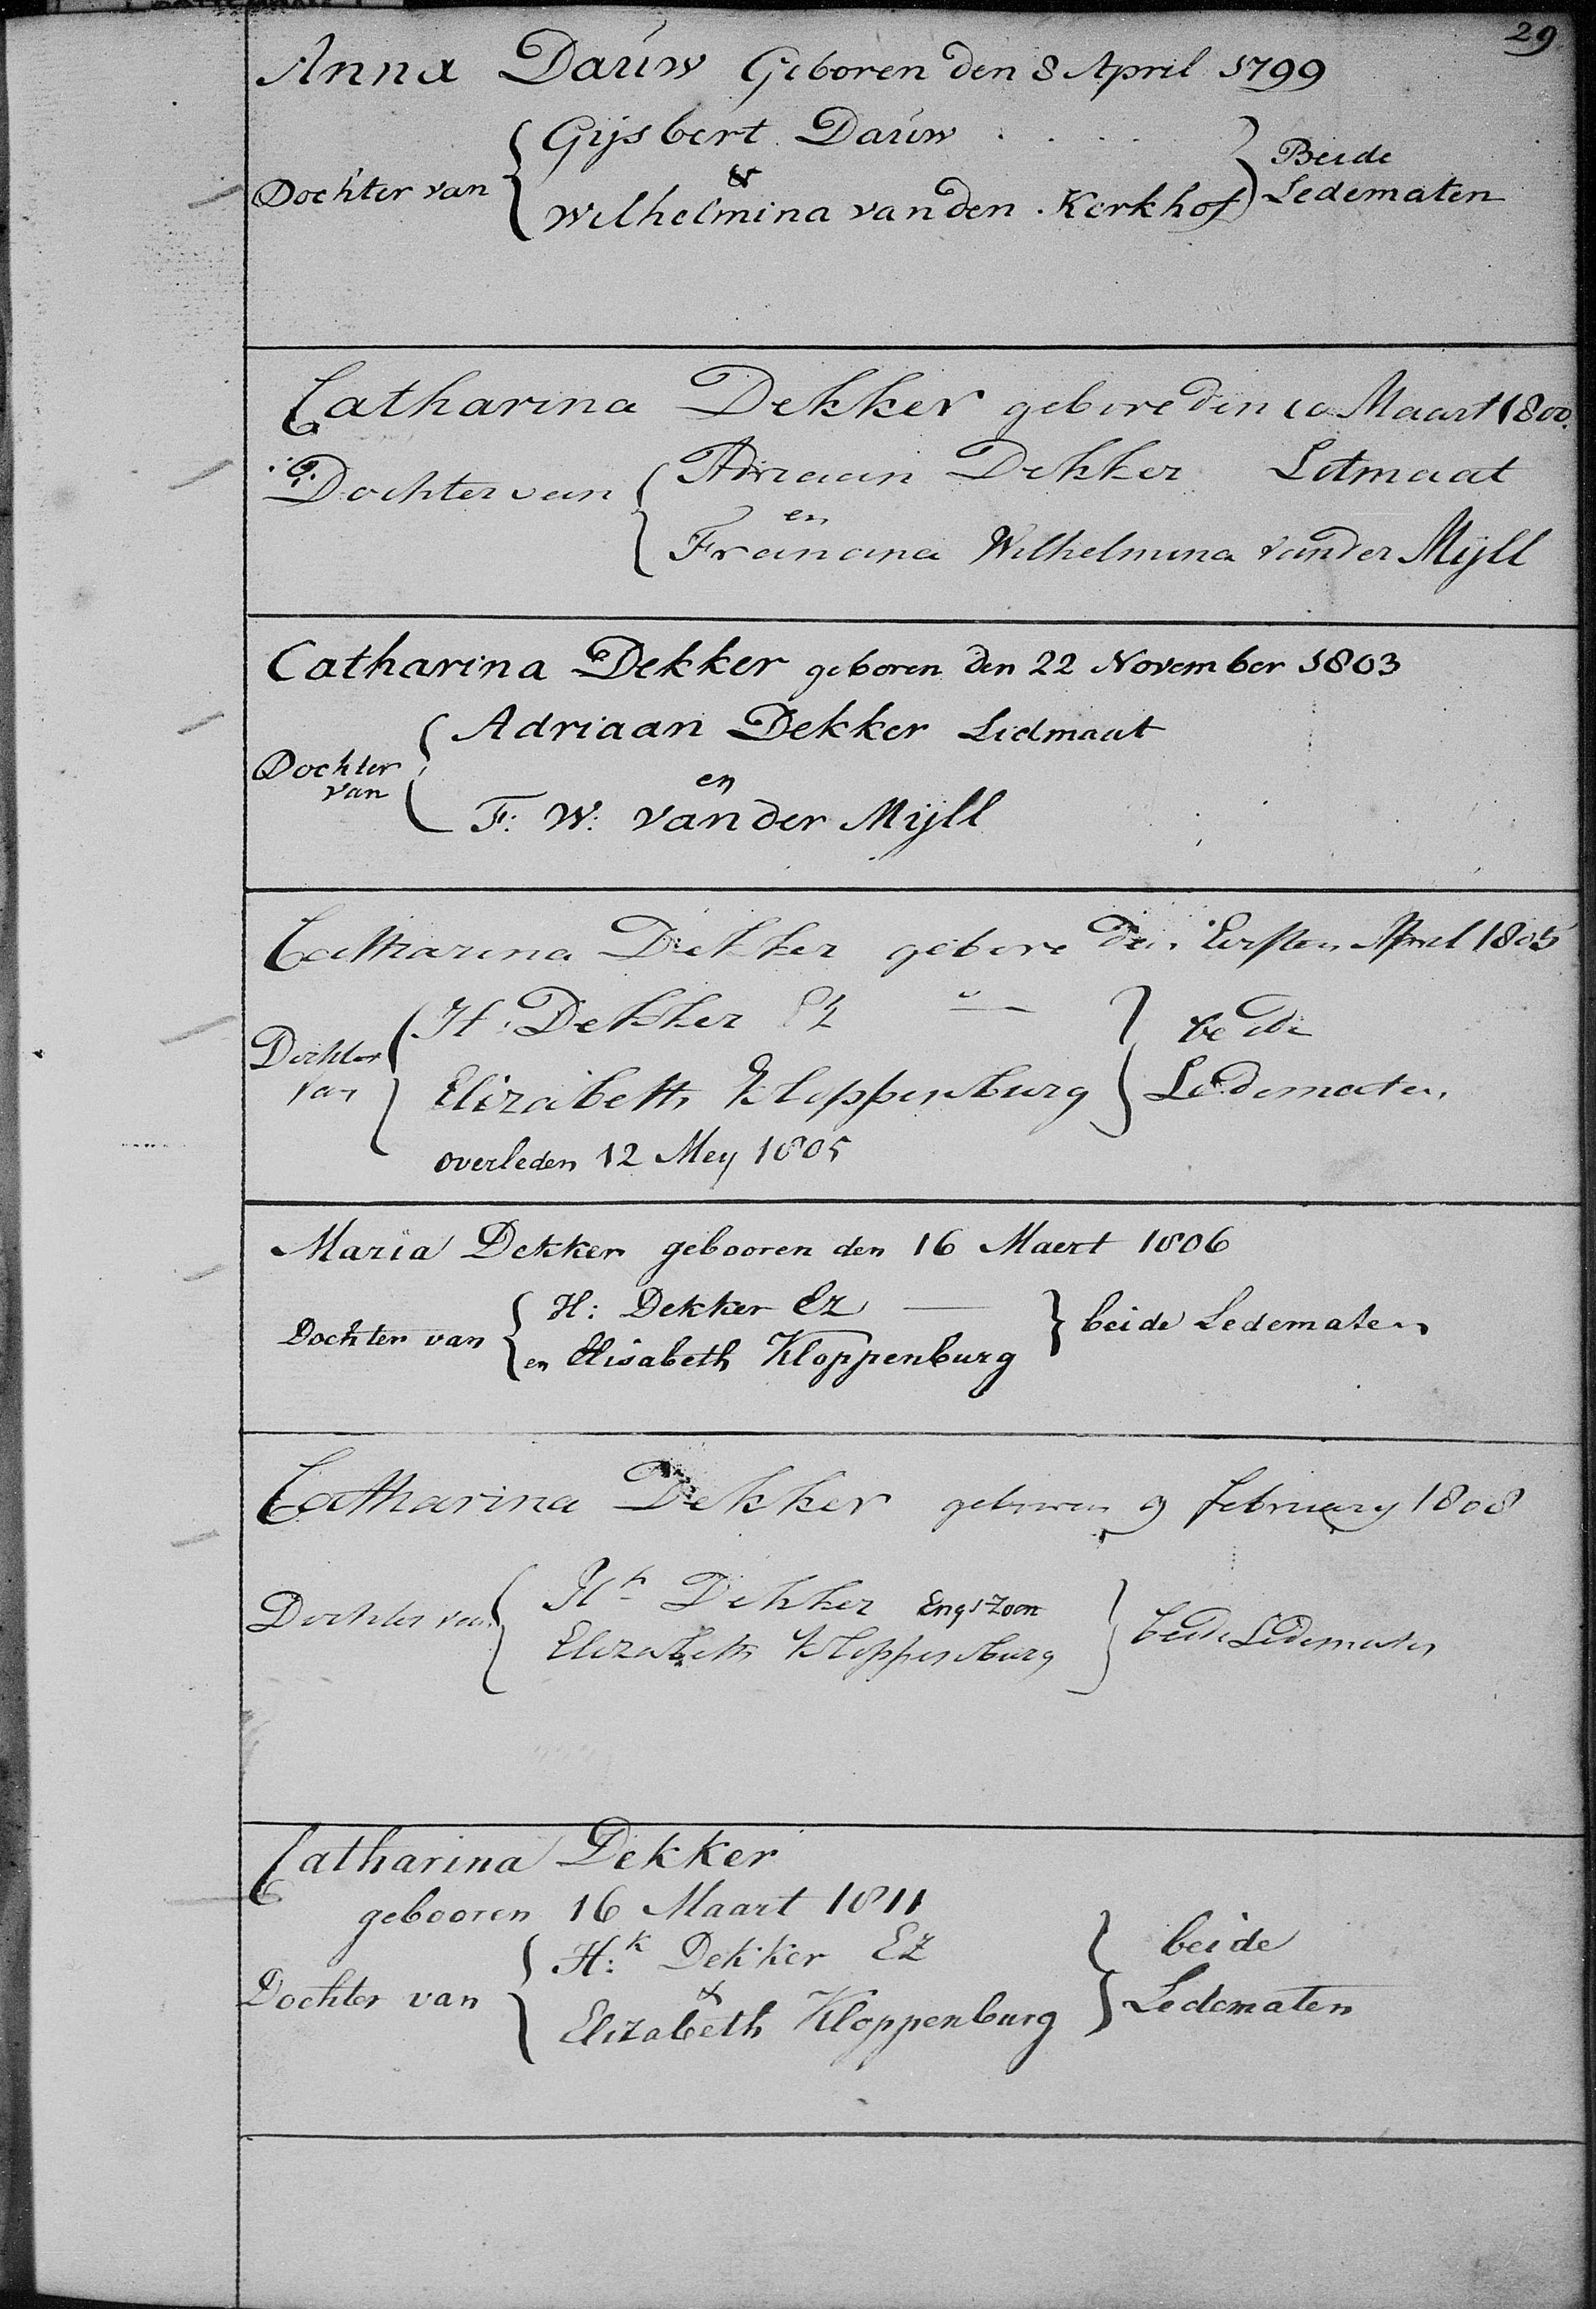 29
Anna Dauw Geboren den 8 April 1799
Gijsbert Dauw
&
Dochter van
Wilhelmina van den Kerkhof
Beide
Ledematen
Catharina Dekker gebore den 10 Maart 1800.
Dochter van
Adriaan Dekker Litmaat
en
Francina Wilhelmina vander Mijll
Catharina Dekker geboren den 22 November 1803
Dochter
van
Adriaan Dekker Lidmaat
en
F: W: van der Mijll
Catharina Dekker gebore den Eersten April 1805
Dochter
van
H: Dekker Ez
Elizabeth Kloppenburg
beide
Ledematen
overleden 12 Mey 1805
Maria Dekker gebooren den 16 Maert 1806
Dochter van
H: Dekker Ez
en Elisabeth Kloppenburg
beide Ledematen
Catharina Dekker gebooren 9 february 1808
Dochter van
Hk Dekker Engszoon
Elizabeth Kloppenburg
beide Ledematen
Catharina Dekker
gebooren 16 Maart 1811
Dochter van
H:k Dekker EZ
&
Elizabeth Kloppenburg
beide
Ledematen